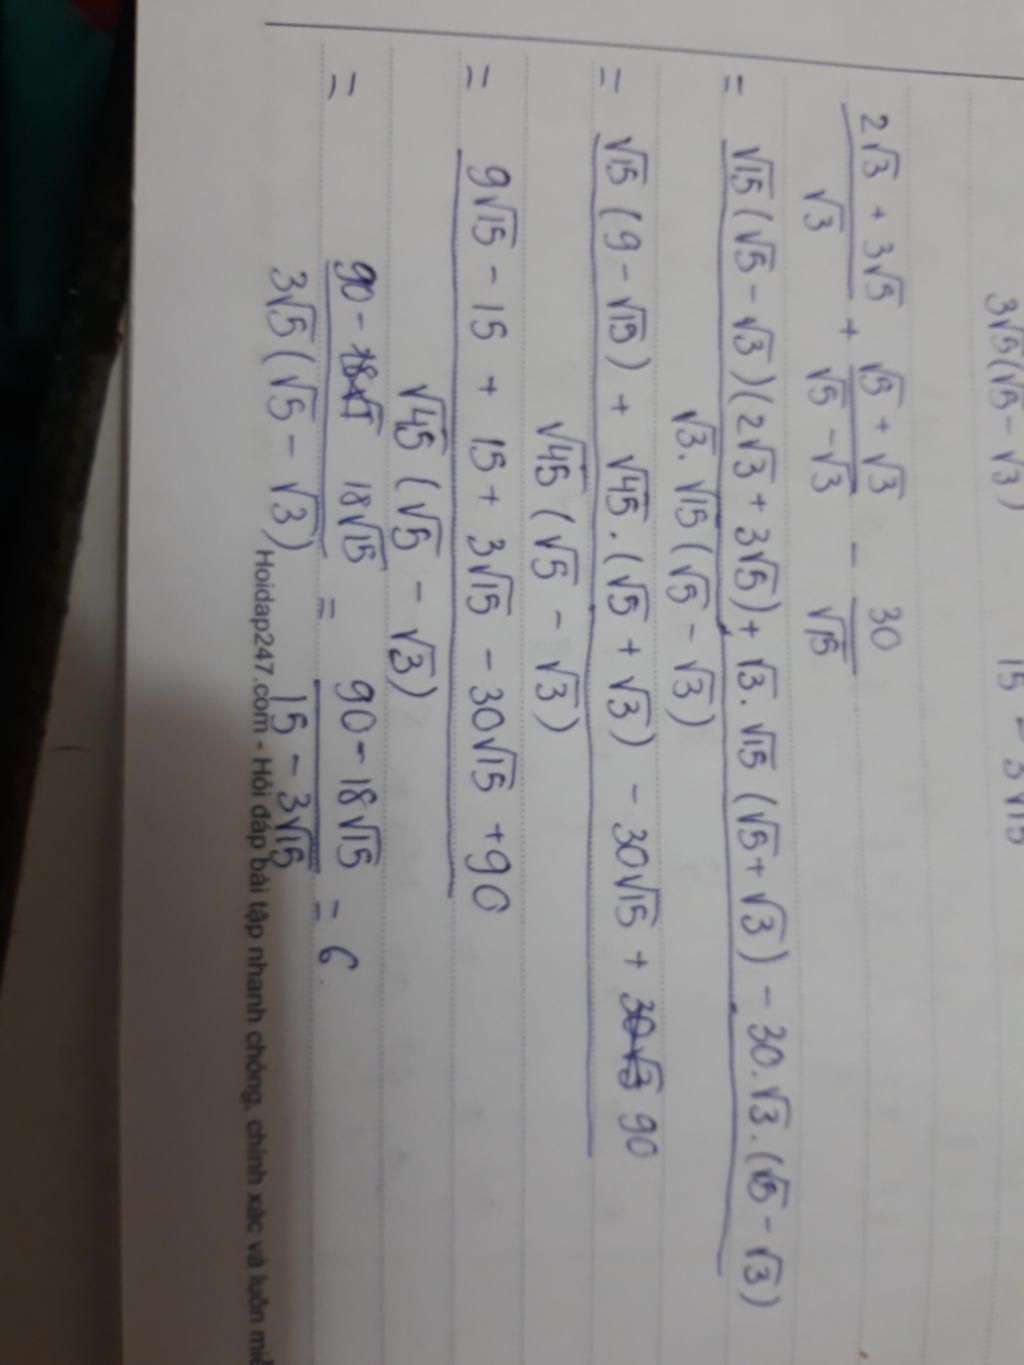 3√5(√5 - √3) 15 - 3√15
2√3 + 3√5 / √3 + √5 + √3 / √5 - √3 - 30 / √15
= √15(√5 - √3)(2√3 + 3√5) + √3.√15(√5 + √3) - 30.√3.(√5 - √3)
√3.√15(√5 - √3)
= √15(9 - √15) + √45.(√5 + √3) - 30√15 + 90
√45(√5 - √3)
= 9√15 - 15 + 15 + 3√15 - 30√15 + 90
√45(√5 - √3)
= 90 - 18√15 / 3√5(√5 - √3) = 90 - 18√15 / 15 - 3√15 = 6.
Hoidap247.com - Hỏi đáp bài tập nhanh chóng, chính xác và luôn